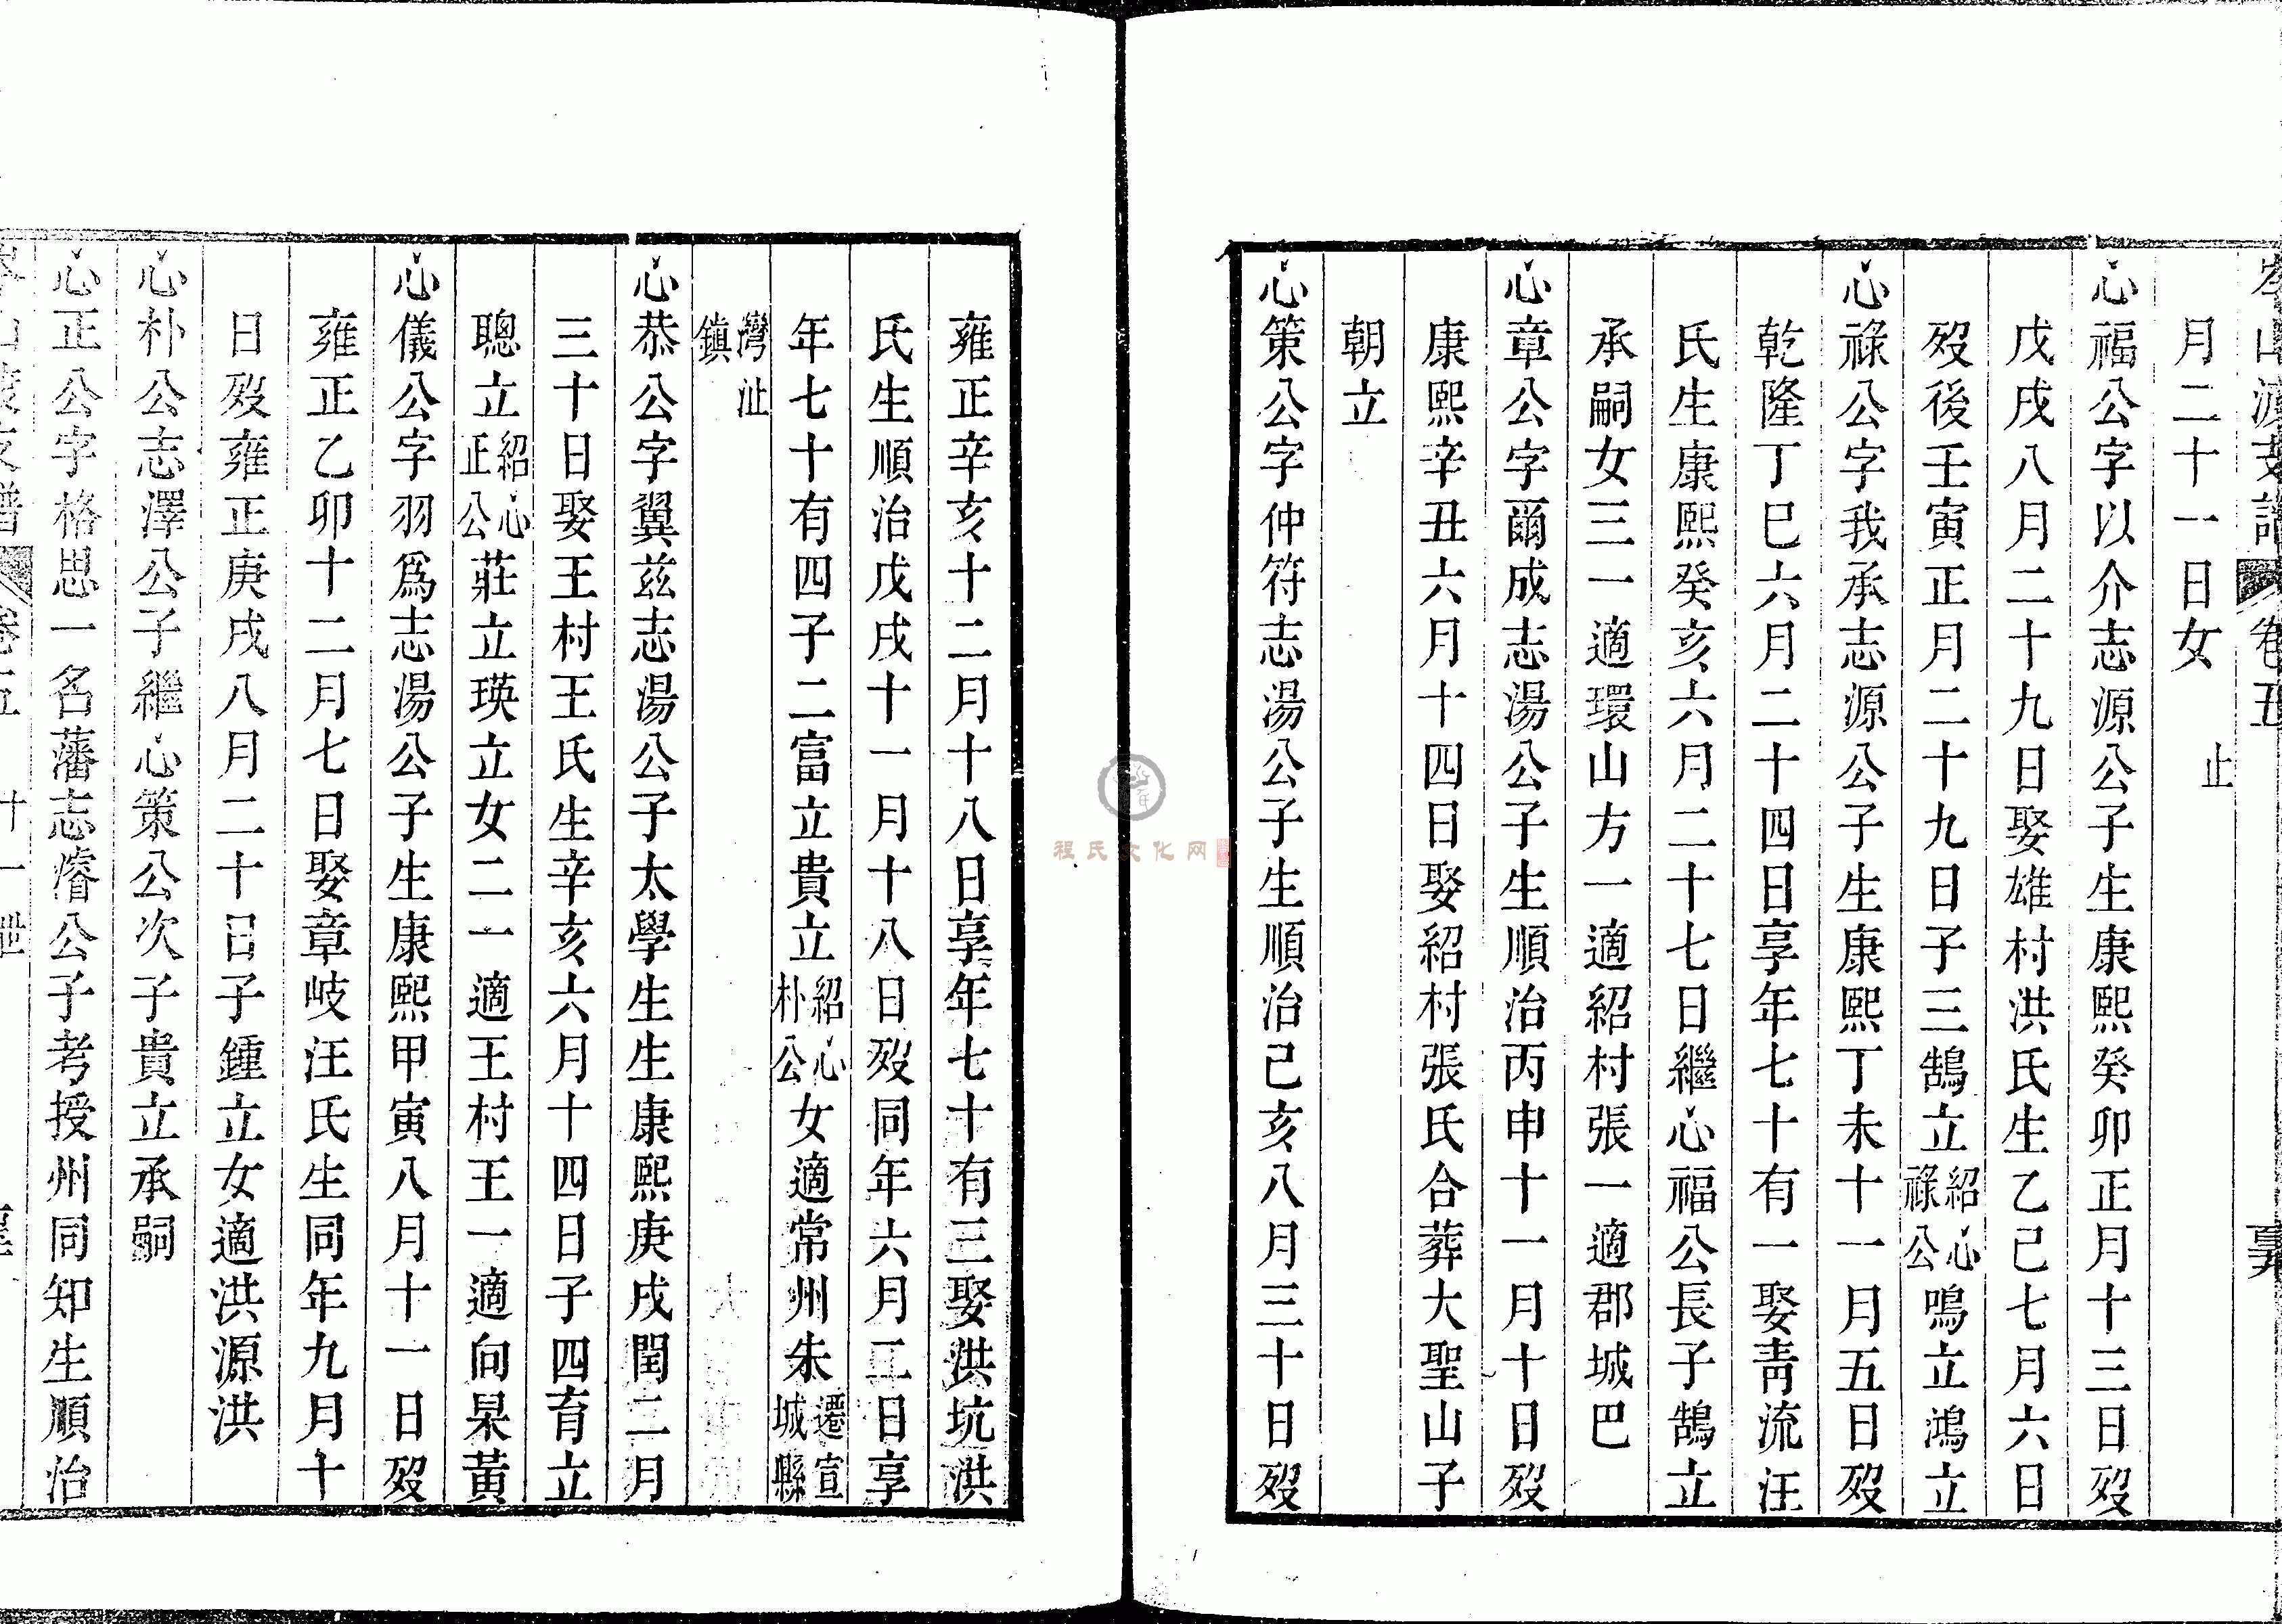 月二十一日女 止
心福公字以介志源公子生康熙癸卯正月十三日歿
戊戌八月二十九日娶雄村洪氏生乙己七月六日
歿後壬寅正月二十九日子三鵠立紹心祿公鳴立鴻立
心祿公字我承志源公子生康熙丁未十一月五日歿
乾隆丁巳六月二十四日享年七十有一娶靑流汪
氏生康熙癸亥六月二十七日繼心福公長子鵠立
承嗣女三一適環山方一適紹村張一適郡城巴
心章公字爾成志湯公子生順治丙申十一月十日歿
康熙辛丑六月十四日娶紹村張氏合葬大聖山子
朝立
心策公字仲符志湯公子生順治己亥八月三十日歿
雍正辛亥十二月十八日享年七十有三娶洪坑洪
氏生順治戊戌十一月十八日歿同年六月二日享
年七十有四子二富立貴立紹心朴公女適常州朱遷宣城縣
灣沚鎮
心恭公字翼茲志湯公子太學生生康熙庚戌閏二月
三十日娶王村王氏生辛亥六月十四日子四育立
聰立紹心正公莊立瑛立女二一適王村王一適向杲黃
心儀公字羽爲志湯公子生康熙甲寅八月十一日歿
雍正乙卯十二月七日娶章岐汪氏生同年九月十
日歿雍正庚戌八月二十日子鍾立女適洪源洪
心朴公志澤公子繼心策公次子貴立承嗣
心正公字格思一名藩志濬公子考授州同知生順治
程氏文化网